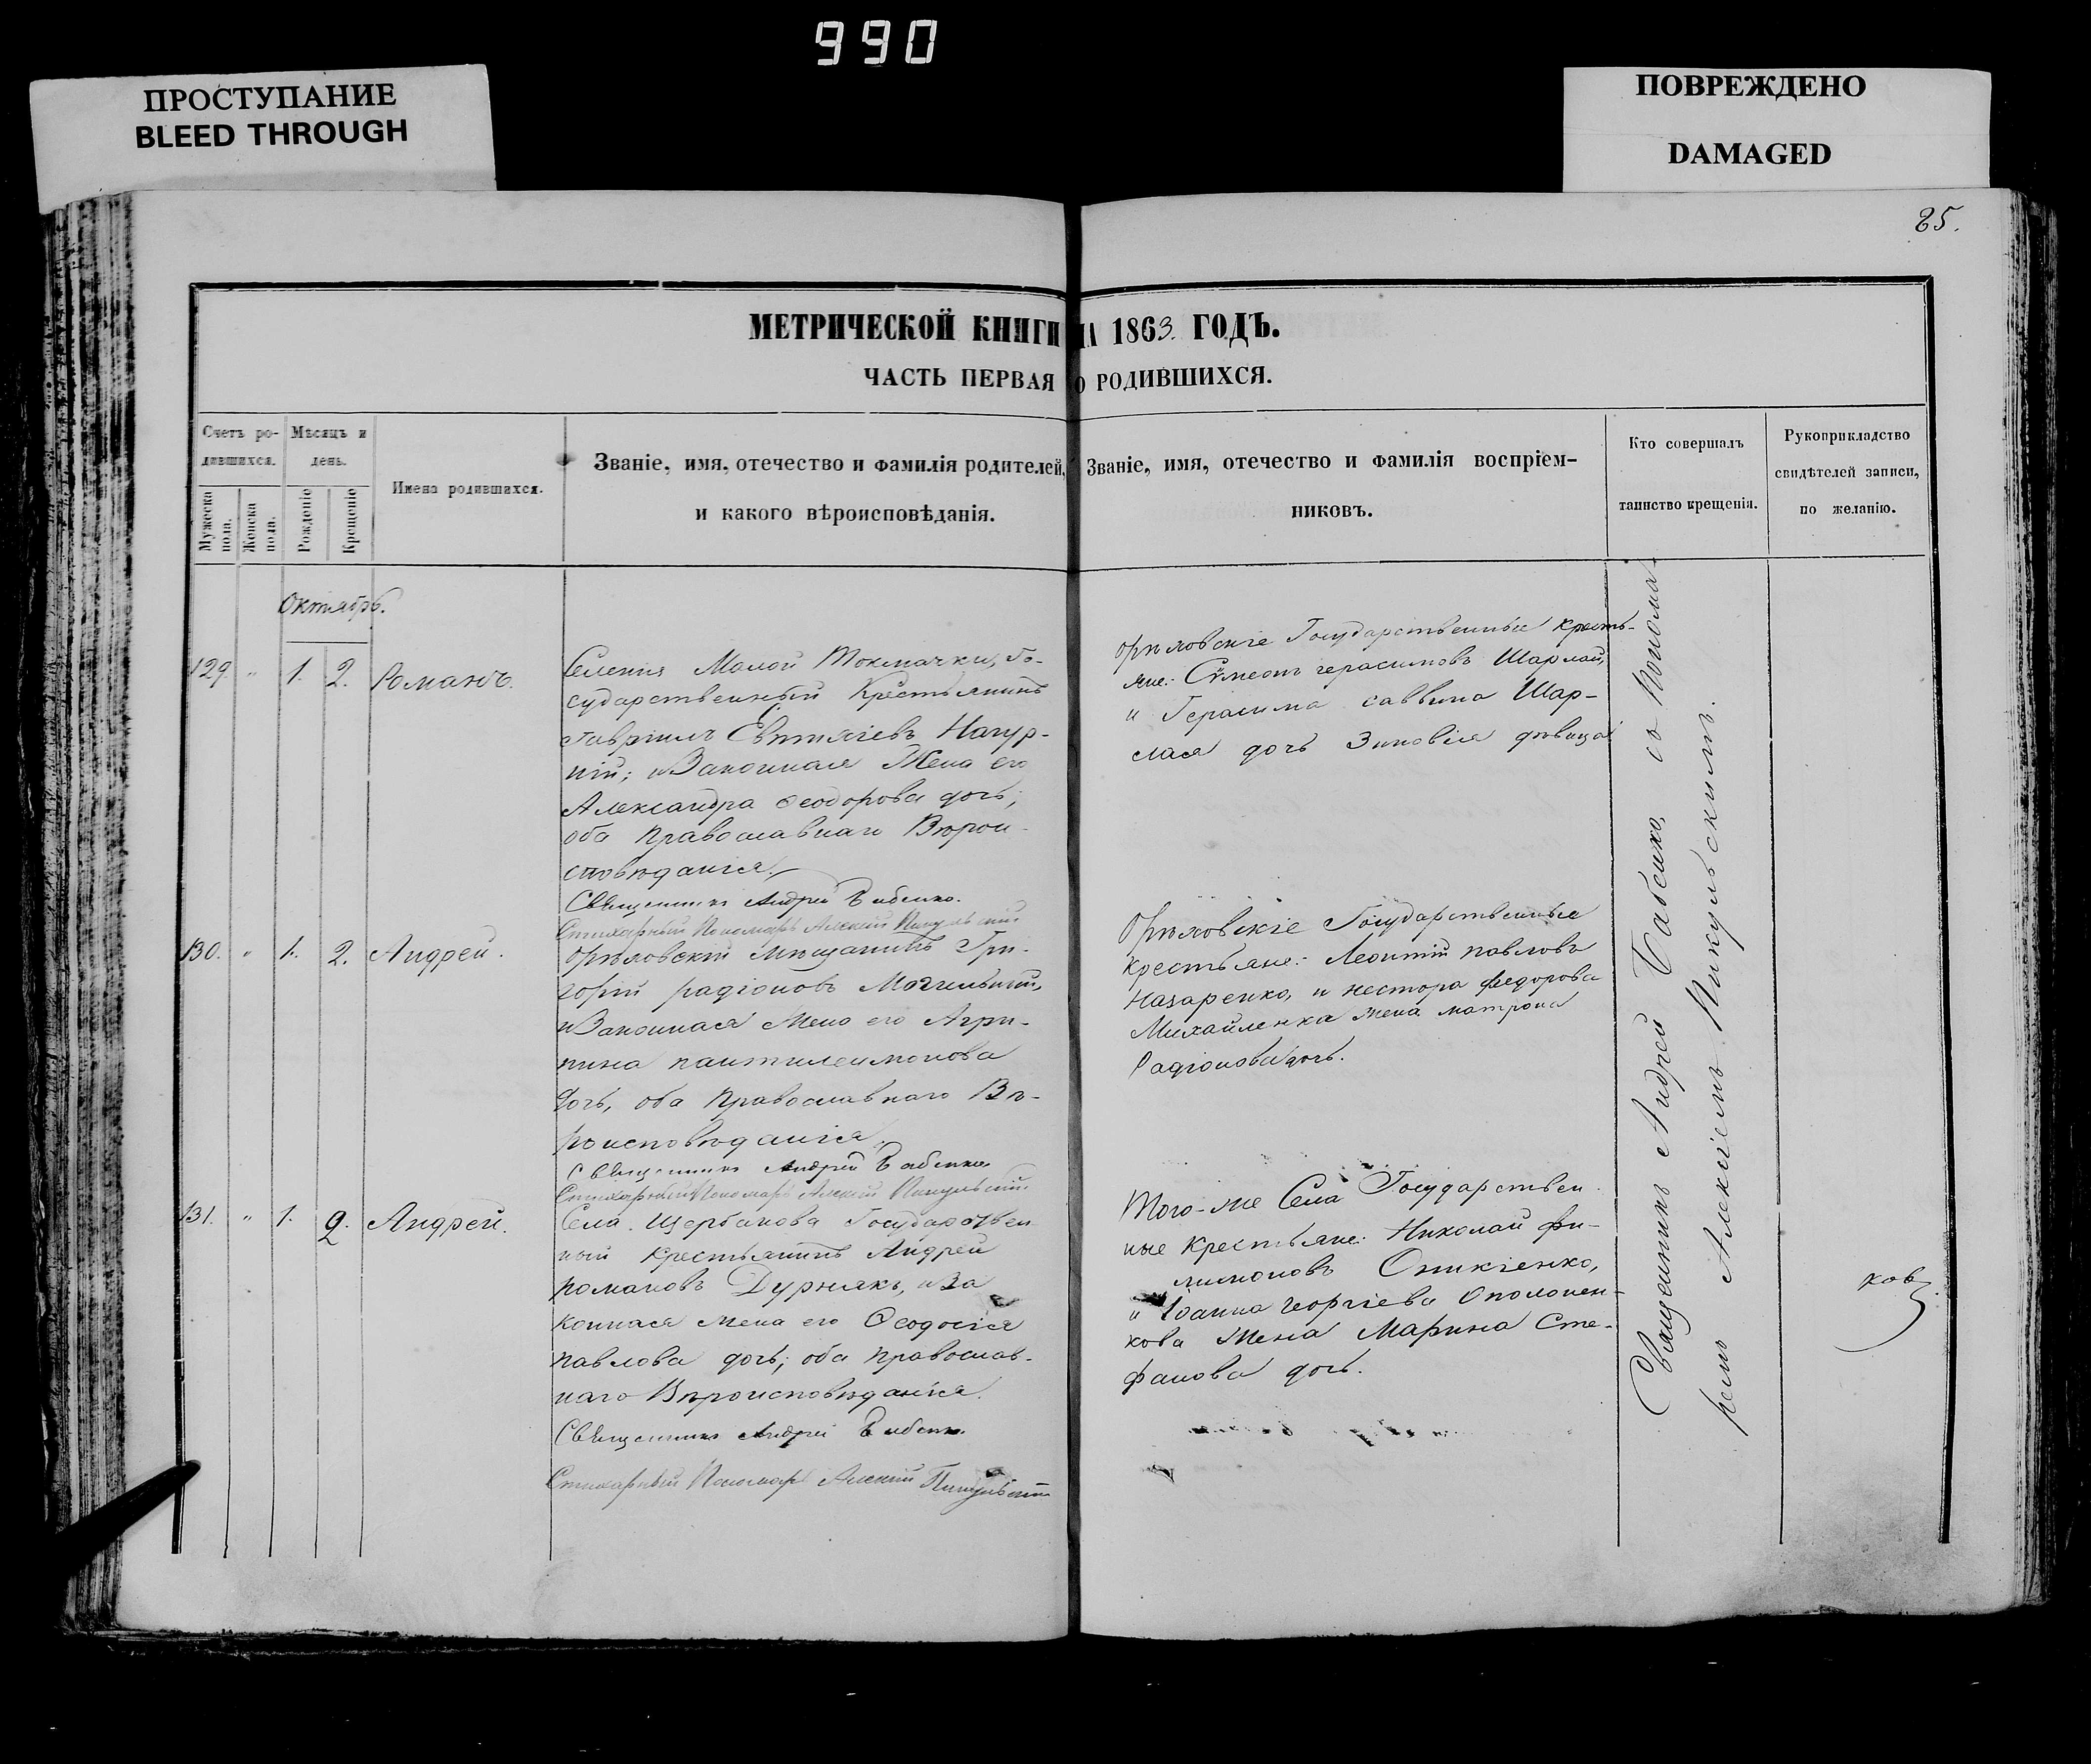 990
ПРОСТУПАНИЕ
BLEED THROUGH
ПОВРЕЖДЕНО
DAMAGED
85.
МЕТРИЧЕСКОЙ КНИГИ НА 1863. ГОДЪ.
ЧАСТЬ ПЕРВАЯ О РОДИВШИХСЯ.
Счетъ ро-
дившихся.
Мужеска пола.
Женска пола.
Мѣсяцъ и
день.
Рожденіе
Крещеніе
Имена родившихся.
Званіе, имя, отечество и фамилія родителей,
и какого вѣроисповѣданія.
Званіе, имя, отечество и фамилія воспріем-
никовъ.
Кто совершалъ
таинство крещенія.
Рукоприкладство
свидѣтелей записи,
по желанію.
Октябрь.
129. " 1. 2. Романъ.
Селенія Малой Токмачки, Го-
сударственный Крестьянинъ
Гавріилъ Нагур-
ній; и Законная Жена его
Александра Ѳеодорова дочь;
оба Православнаго Вѣрои-
сповѣданія.
Священникъ Андрей Бабенко.
Стихарный Пономарь Алексій Пикульскій
Орѣховскіе Государственные кресть-
яне: Сѵмеонъ герасимовъ Шарлай,
и Герасима саввина Шар-
лая дочь Зиновія дѣвица
130. " 1. 2. Андрей.
Орѣховскій мѣщанинъ Гри-
горій радіоновъ Могильный,
и Законная Жена его Агри-
пина пантилеимонова
дочь, оба Православнаго Вѣ-
роисповѣданія.
Священникъ Андрей Бабенко
Стихарный Пономарь Алексій Пикульскій
Орѣховскіе Государственные
крестьяне: Леонтій павловъ
Назаренко, и нестора федорова
Михайленка жена матрона
Радіонова дочь.
131. " 1. 2. Андрей.
Села Щербакова Государствен
ный крестьянинъ Андрей
романовъ Дурнякъ, и За
конная жена его Ѳеодосія
павлова дочь; оба православ-
наго Вѣроисповѣданія.
Священникъ Андрей Бабенко.
Стихарный Пономарь Алексій Пикульскій
Того-же Села Государствен
ные Крестьяне: Николай фи-
лимоновъ Оникіенко,
и Іоанна георгіева
кова Жена Марина Сте-
фанова дочь.
Священникъ Андрей Бабенко, съ Понома-
ремъ Алексіемъ Пикульскимъ.
ков